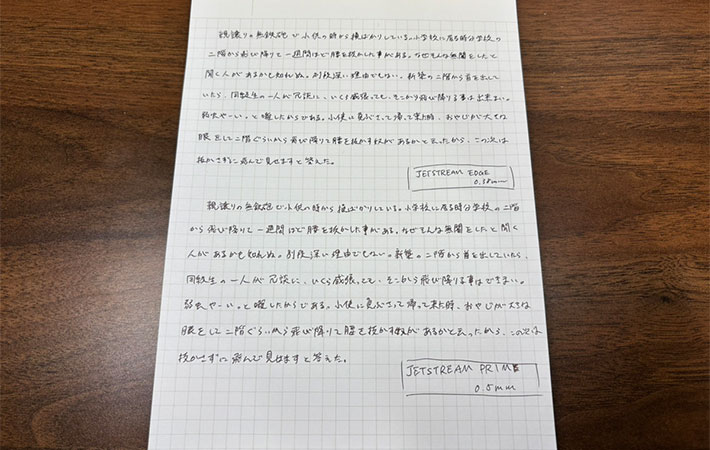 親譲りの無鉄砲で小供の時から損ばかりしている。小学校に居る時分学校の
二階から飛び降りて一週間ほど腰を抜かした事がある。なぜそんな無闇をしたと
聞く人があるかも知れぬ。別段深い理由でもない。新築の二階から首を出して
いたら、同級生の一人が冗談に、いくら威張っても、そこから飛び降りる事は出来まい。
弱虫やーい。と囃したからである。小使に負ぶさって帰って来た時、おやじが大きな
眼をして二階ぐらいから飛び降りて腰を抜かす奴があるかと云ったから、この次は
抜かさずに飛んで見せますと答えた。
JETSTREAM EDGE
0.38mm
親譲りの無鉄砲で小供の時から損ばかりしている。小学校に居る時分学校の二階
から飛び降りて一週間ほど腰を抜かした事がある。なぜそんな無闇をしたと聞く
人があるかも知れぬ。別段深い理由でもない。新築の二階から首を出していたら、
同級生の一人が冗談に、いくら威張っても、そこから飛び降りる事はできまい。
弱虫やーい。と囃したからである。小使に負ぶさって帰って来た時、おやじが大きな
眼をして二階ぐらいから飛び降りて腰を抜かす奴があるかと云ったから、この次は
抜かさずに飛んで見せますと答えた。
JETSTREAM PRIME
0.5mm